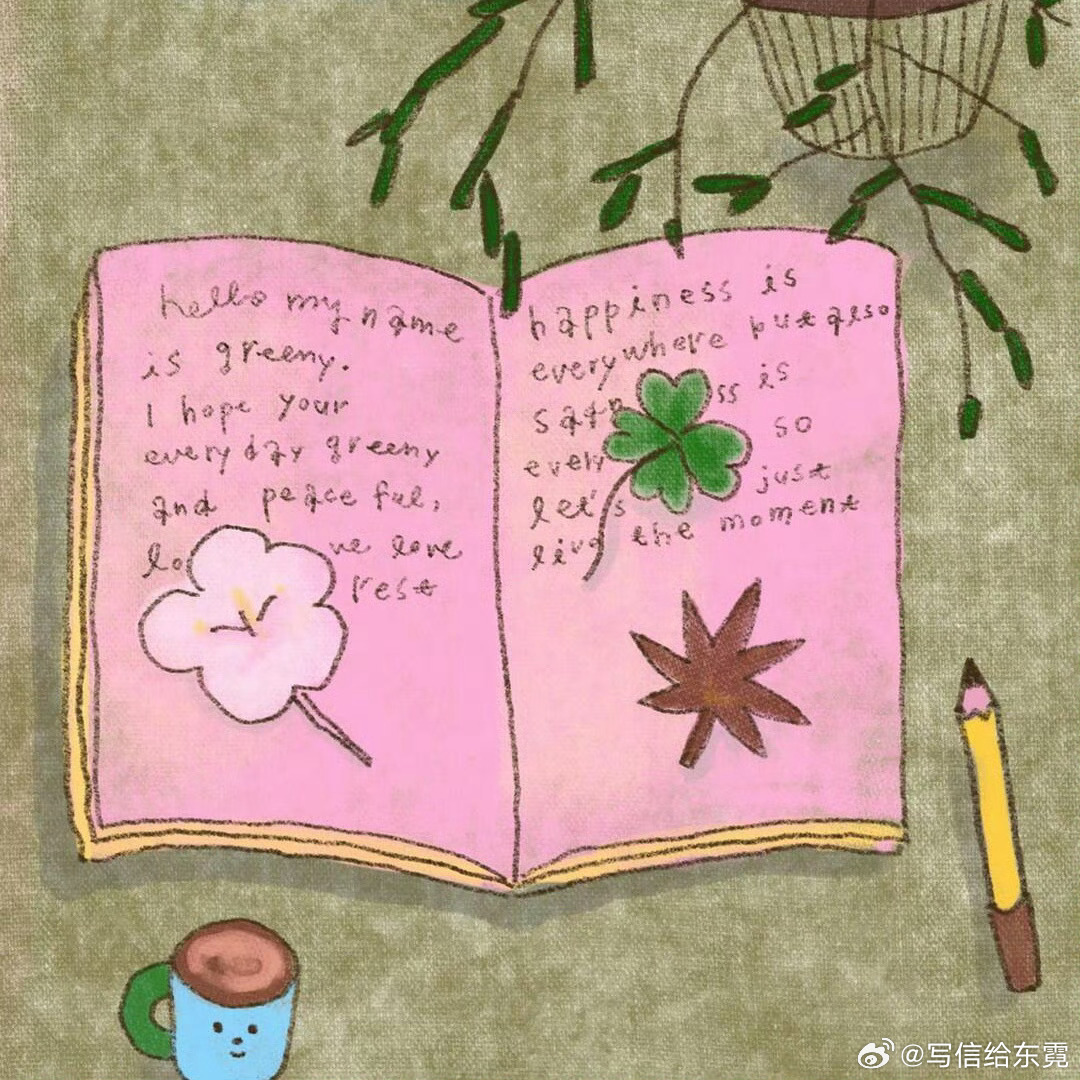 hello my name
is greeny.
I hope your
everyday greeny
and peaceful,
lo ve love
rest
happiness is
everywhere but also
sadn ss is
every so
let's just
live the moment
@写信给东霓